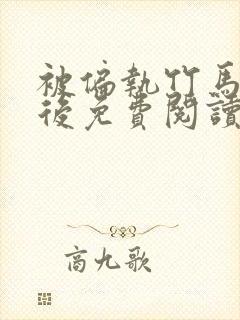 被偏執竹馬
後免費閱讀
商九歌